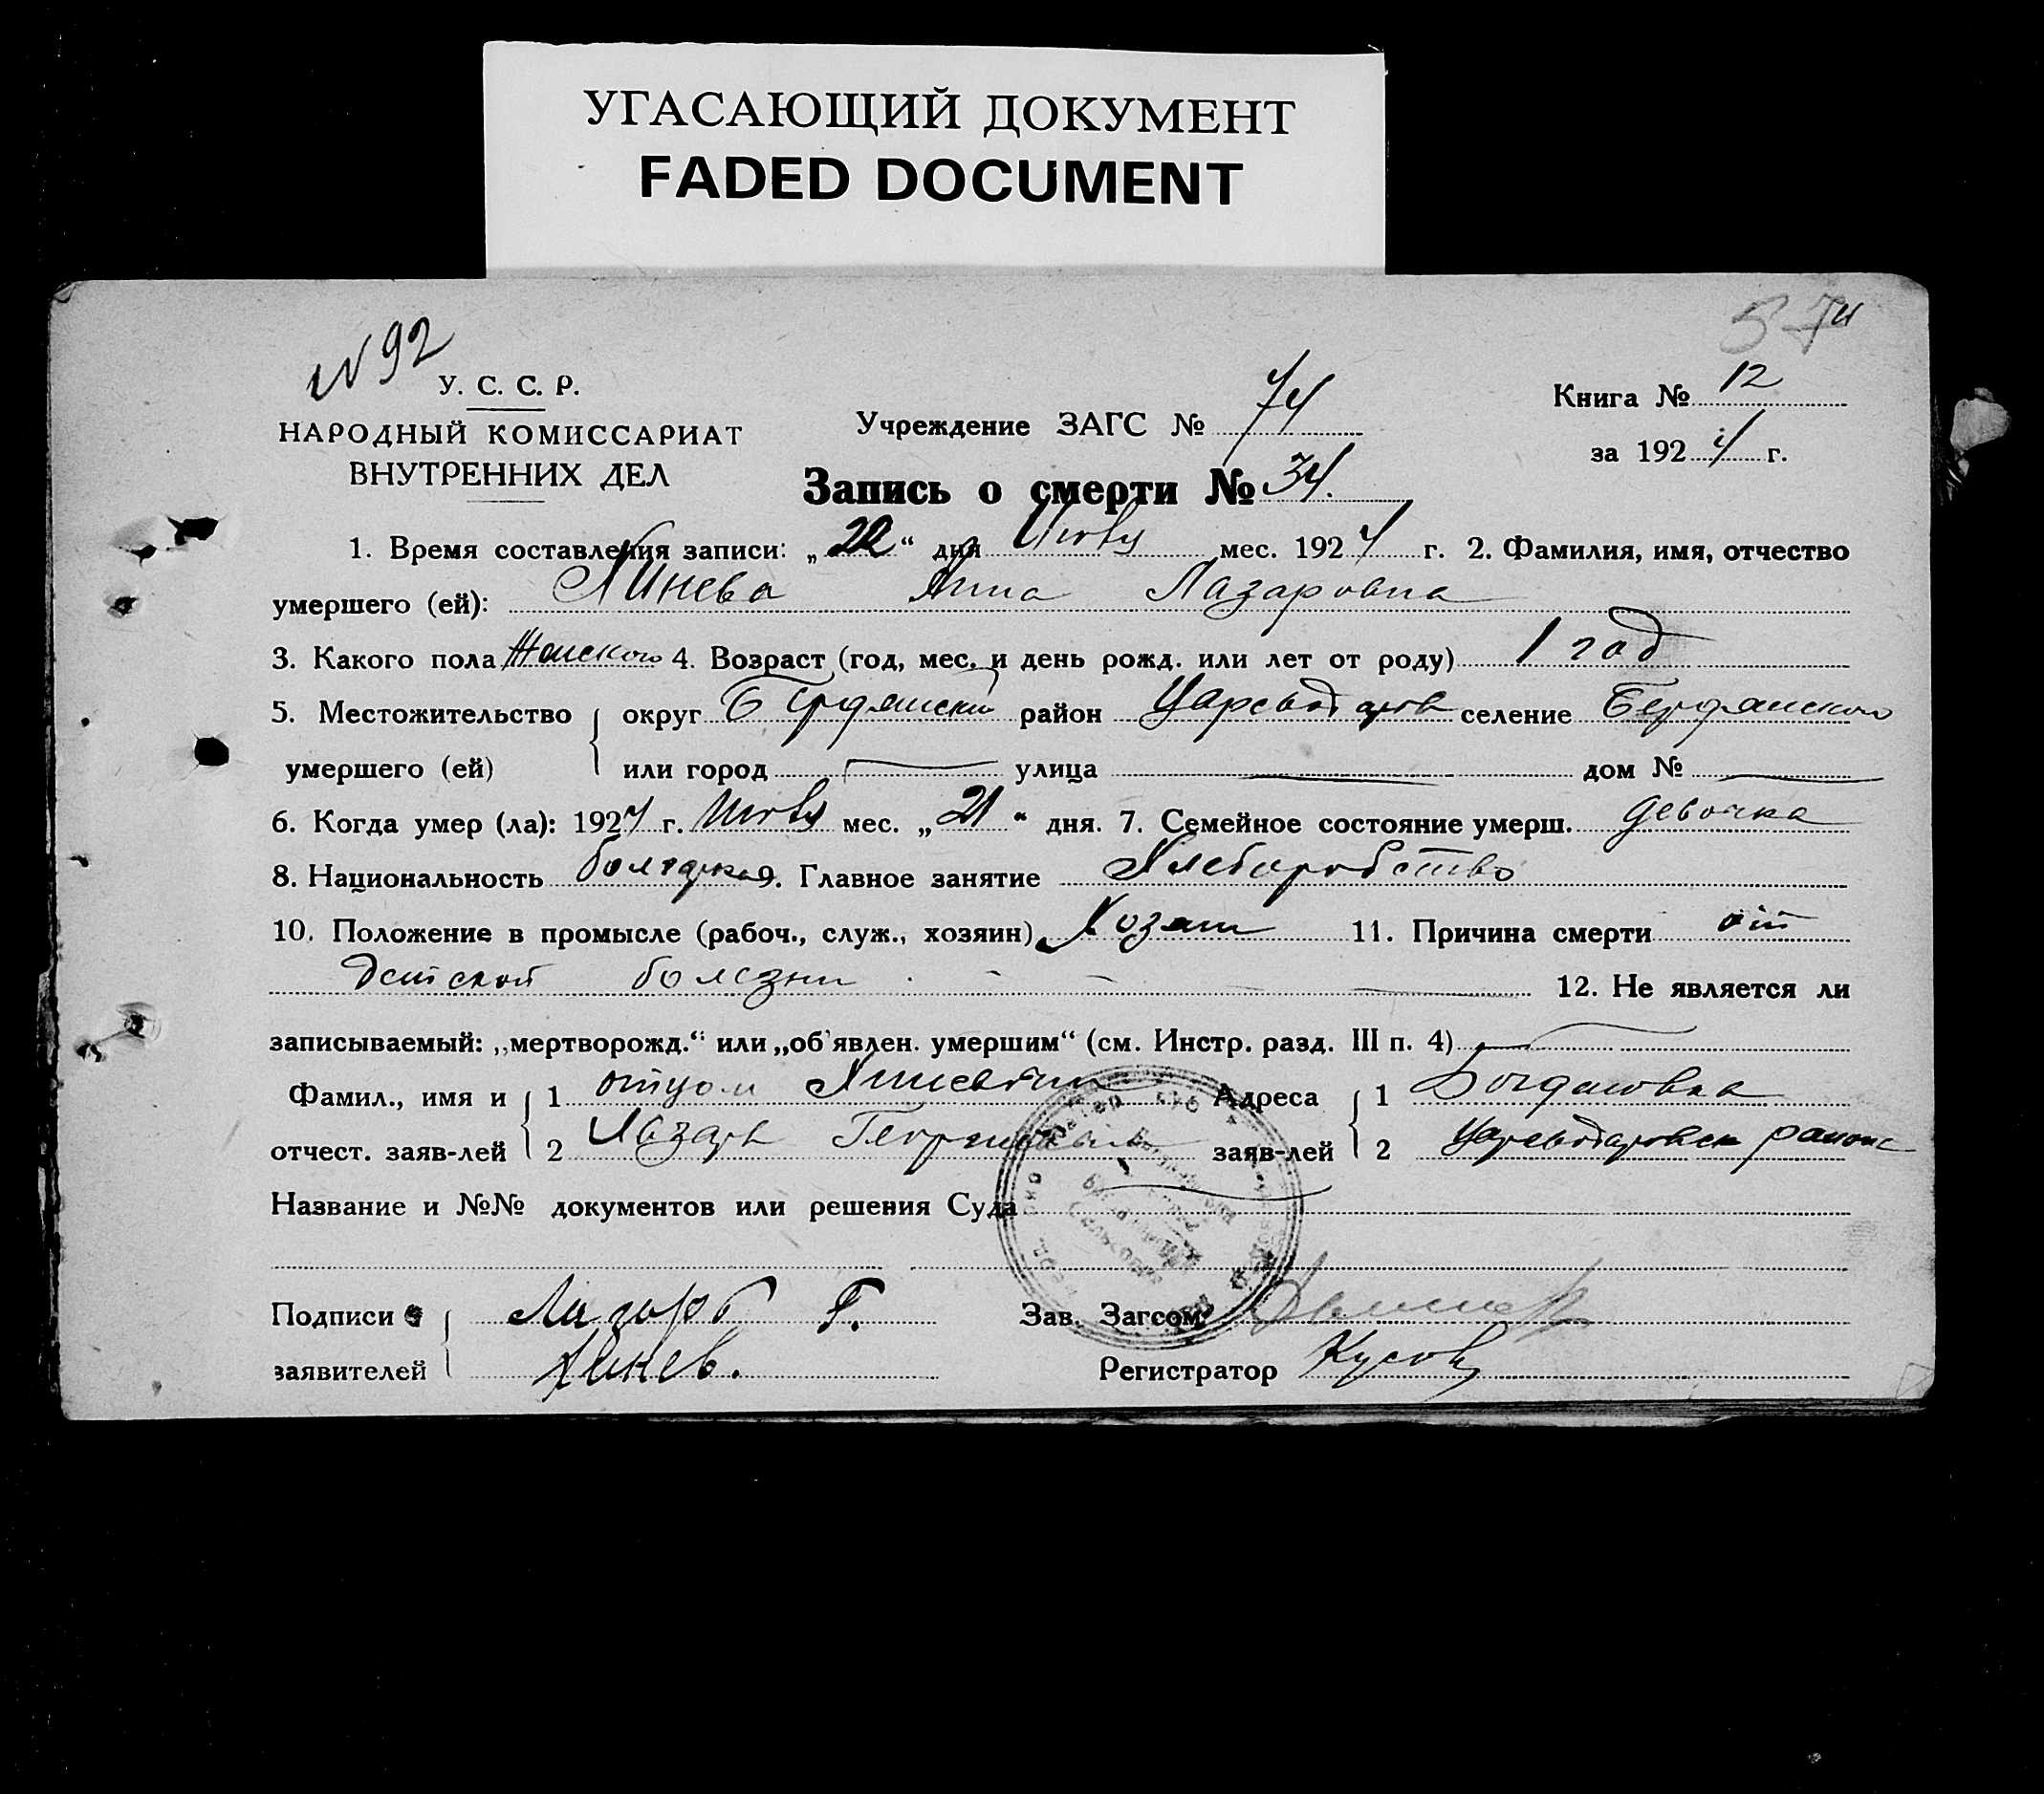 УГАСАЮЩИЙ ДОКУМЕНТ
FADED DOCUMENT
N 92
У. С. С. Р.
НАРОДНЫЙ КОМИССАРИАТ
ВНУТРЕННИХ ДЕЛ
Учреждение ЗАГС № 74
Книга № 12
за 1924 г.
Запись о смерти № 34.
1. Время составления записи: „22“ дня мес. 1924 г. 2. Фамилия, имя, отчество
умершего (ей): Анна Лазаровна
3. Какого пола Женского 4. Возраст (год, мес. и день рожд. или лет от роду) 1 год
5. Местожительство округ Бердянский район Цареводаров селение
умершего (ей) или город улица дом №
6. Когда умер (ла): 1924 г. мес. „21“ дня. 7. Семейное состояние умерш. девочка
8. Национальность болгарка 9. Главное занятие Хлеборобство
10. Положение в промысле (рабоч., служ., хозяин) Хозяин 11. Причина смерти от
детской болезни 12. Не является ли
записываемый: „мертворожд.“ или „об'явлен. умершим“ (см. Инстр. разд. III п. 4)
Фамил., имя и 1 отцом Адреса 1 Богдановка
отчест. заяв-лей 2 Лазарь заяв-лей 2 Цареводаровск района
Название и №№ документов или решения Суда
Подписи Лазарь Г. Зав. Загсом
заявителей Регистратор Кусов